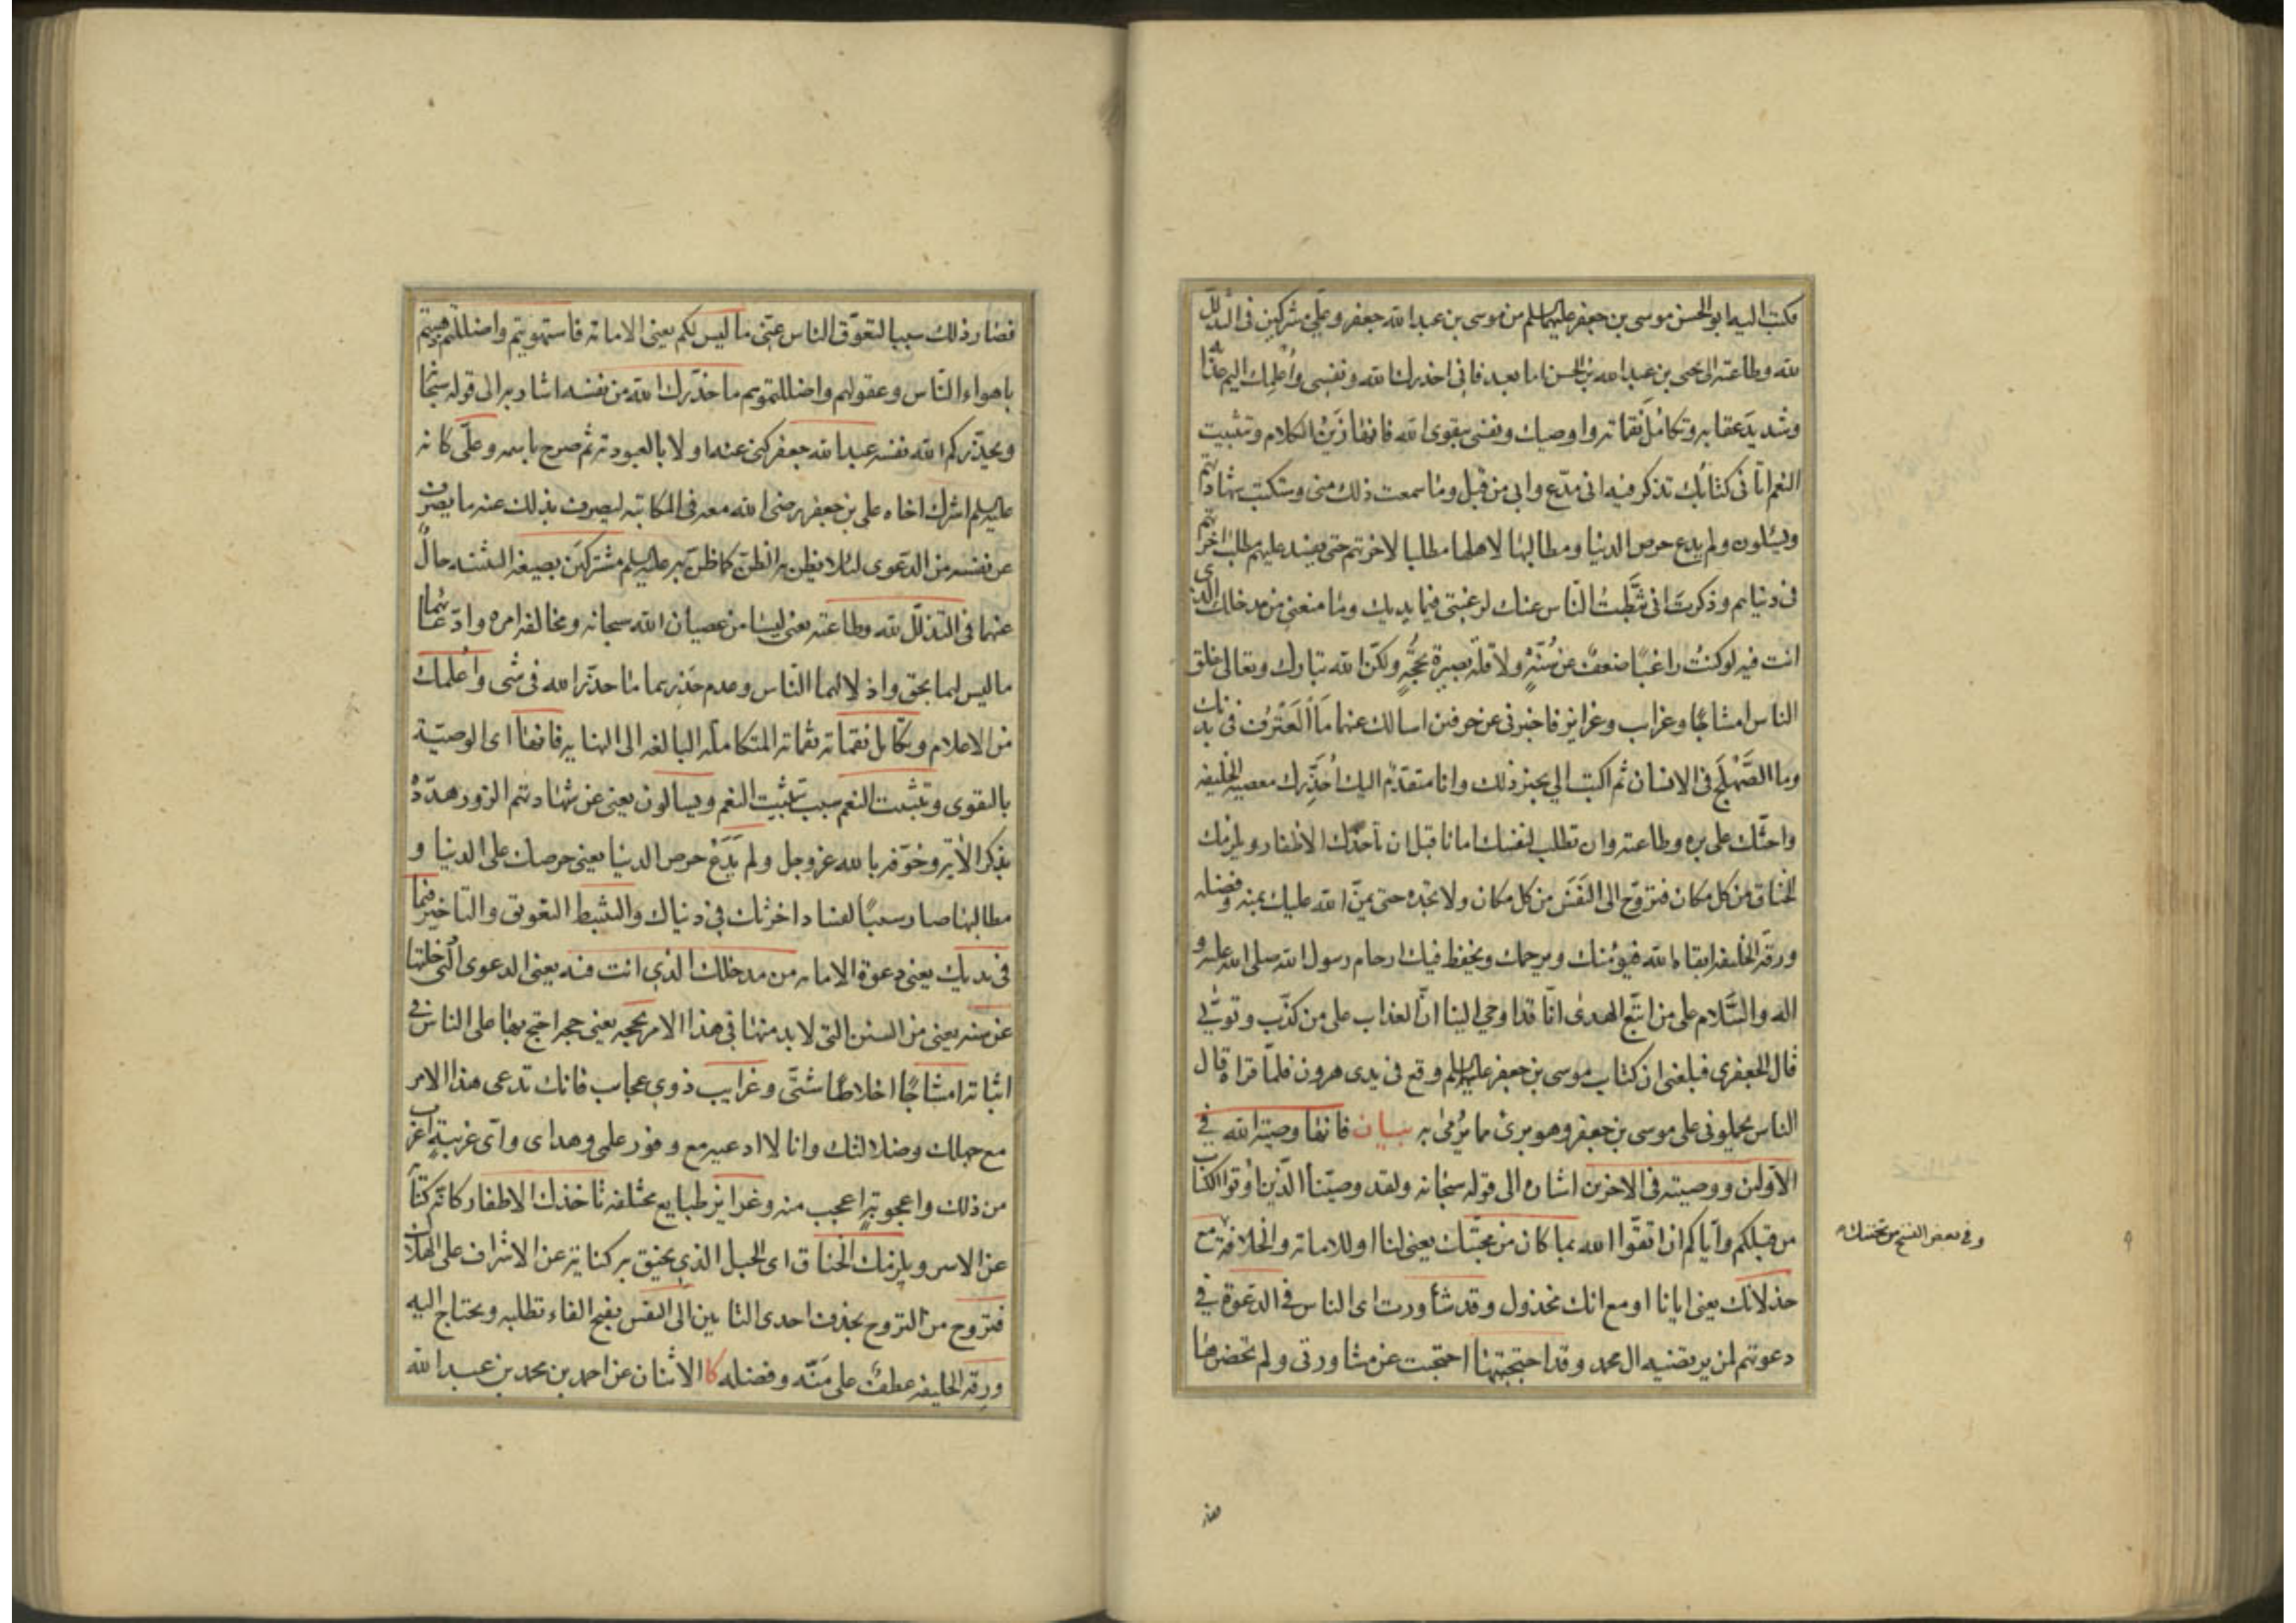 فكتب اليه ابو الحسن موسى بن جعفر عليهما السلم من موسى بن عبد الله جعفر وعلي مشتركين في التذلل
لله وطاعته الى يحيى بن عبد الله بن الحسن اما بعد فاني احذرك الله ونفسي واُعلمك اليم عذابه
وشديد عقابه وتكامل نقماته واوصيك ونفسي بتقوى الله فانها زين الكلام وتثبيت
النعم اتاني كتابك تذكر فيه اني مدّع وابي من قبل وما سمعت ذلك مني وستكتب شهادتهم
ويسئلون ولم يدع حرص الدنيا ومطالبها لاهلها مطلبا لاخرتهم حتى يفسد عليهم مطلب اخرتهم
في دنياهم وذكرت اني ثبّطت الناس عنك لرغبتي فيما يديك وما منعني من مدخلك الذي
انت فيه لو كنت راغبًا ضعف عن سُنّةٍ ولا قلّة بصيرة بحجّةٍ ولكنّ الله تبارك وتعالى خلق
الناس امشاجًا وغرايب وغرايز فاخبرني عن حرفين اسالك عنهما ما العَترُف في بدنك
وما الصَّهْلَج في الانسان ثم اكتب الي بخبر ذلك وانا متقدّم اليك اُحذّرك معصية الخليفه
واحثّك على بره وطاعته وان تطلب لنفسك امانا قبل ان تاخذك الاظفار ويلزمك
الخناق من كل مكان فتروّح الى النَفَس من كل مكان ولا تجده حتى يمنّ الله عليك بمنه وفضله
ورقة الخليفه ابقاه الله فيؤمنك ويرحمك ويحفظ فيك ارحام رسول الله صلى الله عليه و
اله والسَّلام على من اتبع الهدى انّا قد اوحي الينا انّ العذاب على من كذّب وتولّى
قال الجعفري فبلغني ان كتاب موسى بن جعفر عليه السلم وقع في يدي هرون فلمّا قراه قال
الناس يحملوني على موسى بن جعفر وهو بريئ مما يُرمى به بيان فانها وصية الله في
الاولين ووصيته في الاخرين اشاره الى قوله سبحانه ولقد وصيّنا الّذين اُوتوا الكتاب
من قبلكم وايّاكم ان اتقوا الله بما كان من محبّتك يعني لنا او للامامة والخلافة مع
خذلانك يعني ايانا او مع انك مخذول وقد شاورت اى الناس في الدعوة في
دعوتهم لمن يرتضيه ال محمد وقد احتجبتها احتجبت عن مشاورتي ولم تحضرها
وفي بعض النسخ من تحننك
فصار
فصار ذلك سببا لتعوّق الناس عنّي ما ليس لكم يعني الامامة فاستهويتم واضللتم
باهواء النّاس وعقولهم واضللتموهم ما حذّرك الله من نفسه اشار به الى قوله سبحانه
ويحذّركم الله نفسه عبد الله جعفر كنى عنه اولا بالعبودية ثم صرح باسمه وعلّي كانه
عليه السلم اشرك اخاه علي بن جعفر رضى الله معه في المكاتبه ليصرف بذلك عنه ما يصرف
عن نفسه من الدّعوى لئلا يظن به الظنّ كما ظنّ به عليه السلم مشتركين بصيغه التثنيه حالٌ
عنهما في التذلّل لله وطاعته يعني ليسا من عصيان الله سبحانه ومخالفه امره وادّعائهما
ما ليس لهما بحق واذلالهما النّاس وعدم حذرهما مما حذّر الله في شئ واُعلمك
من الاعلام وتكامل نقماته نقماته المتكامله البالغه الى النهايه فانها اى الوصيّة
بالتقوى وتثبيت النعم سبب تثبيت النعم ويسالون يعني عن شهادتهم الزور هدّدهُ
بذكر الاية وخوّفه بالله عز وجل ولم يَدَعْ حرص الدنيا يعني حرصك على الدنيا و
مطالبها صار سببًا لفساد اخرتك في دنياك والتثبط التعويق والتاخير فيما
في يديك يعني دعوة الامامه من مدخلك الذي انت فيه يعني الدعوى الّتي دخلتها
عن سنه يعني من السنن التي لا بد منها في هذا الامر بحجه يعني حجه احتج بها على الناس في
اثباته امشاجًا اخلاطًا شتّى وغرايب ذوي عجايب فانك تدعى هذا الامر
مع جهلك وضلالتك وانا لا ادعيه مع وفور علمي وهداى واى غريبةٍ اغرب
من ذلك واعجوبةٍ اعجب منه وغرايز طبايع مختلفه تاخذك الاظفار كانه كنّاية
عن الاسر ويلزمك الخناق اى الحبل الذي يخنق به كناية عن الاشراف على الهلاك
فتروح من التروح بحذف احدى التاىين الى النفس بفتح الفاء تطلبه ويحتاج اليه
ورقه الخليفه عطف على مَنّه وفضله كا الاثنان عن احمد بن محمد بن عبد الله